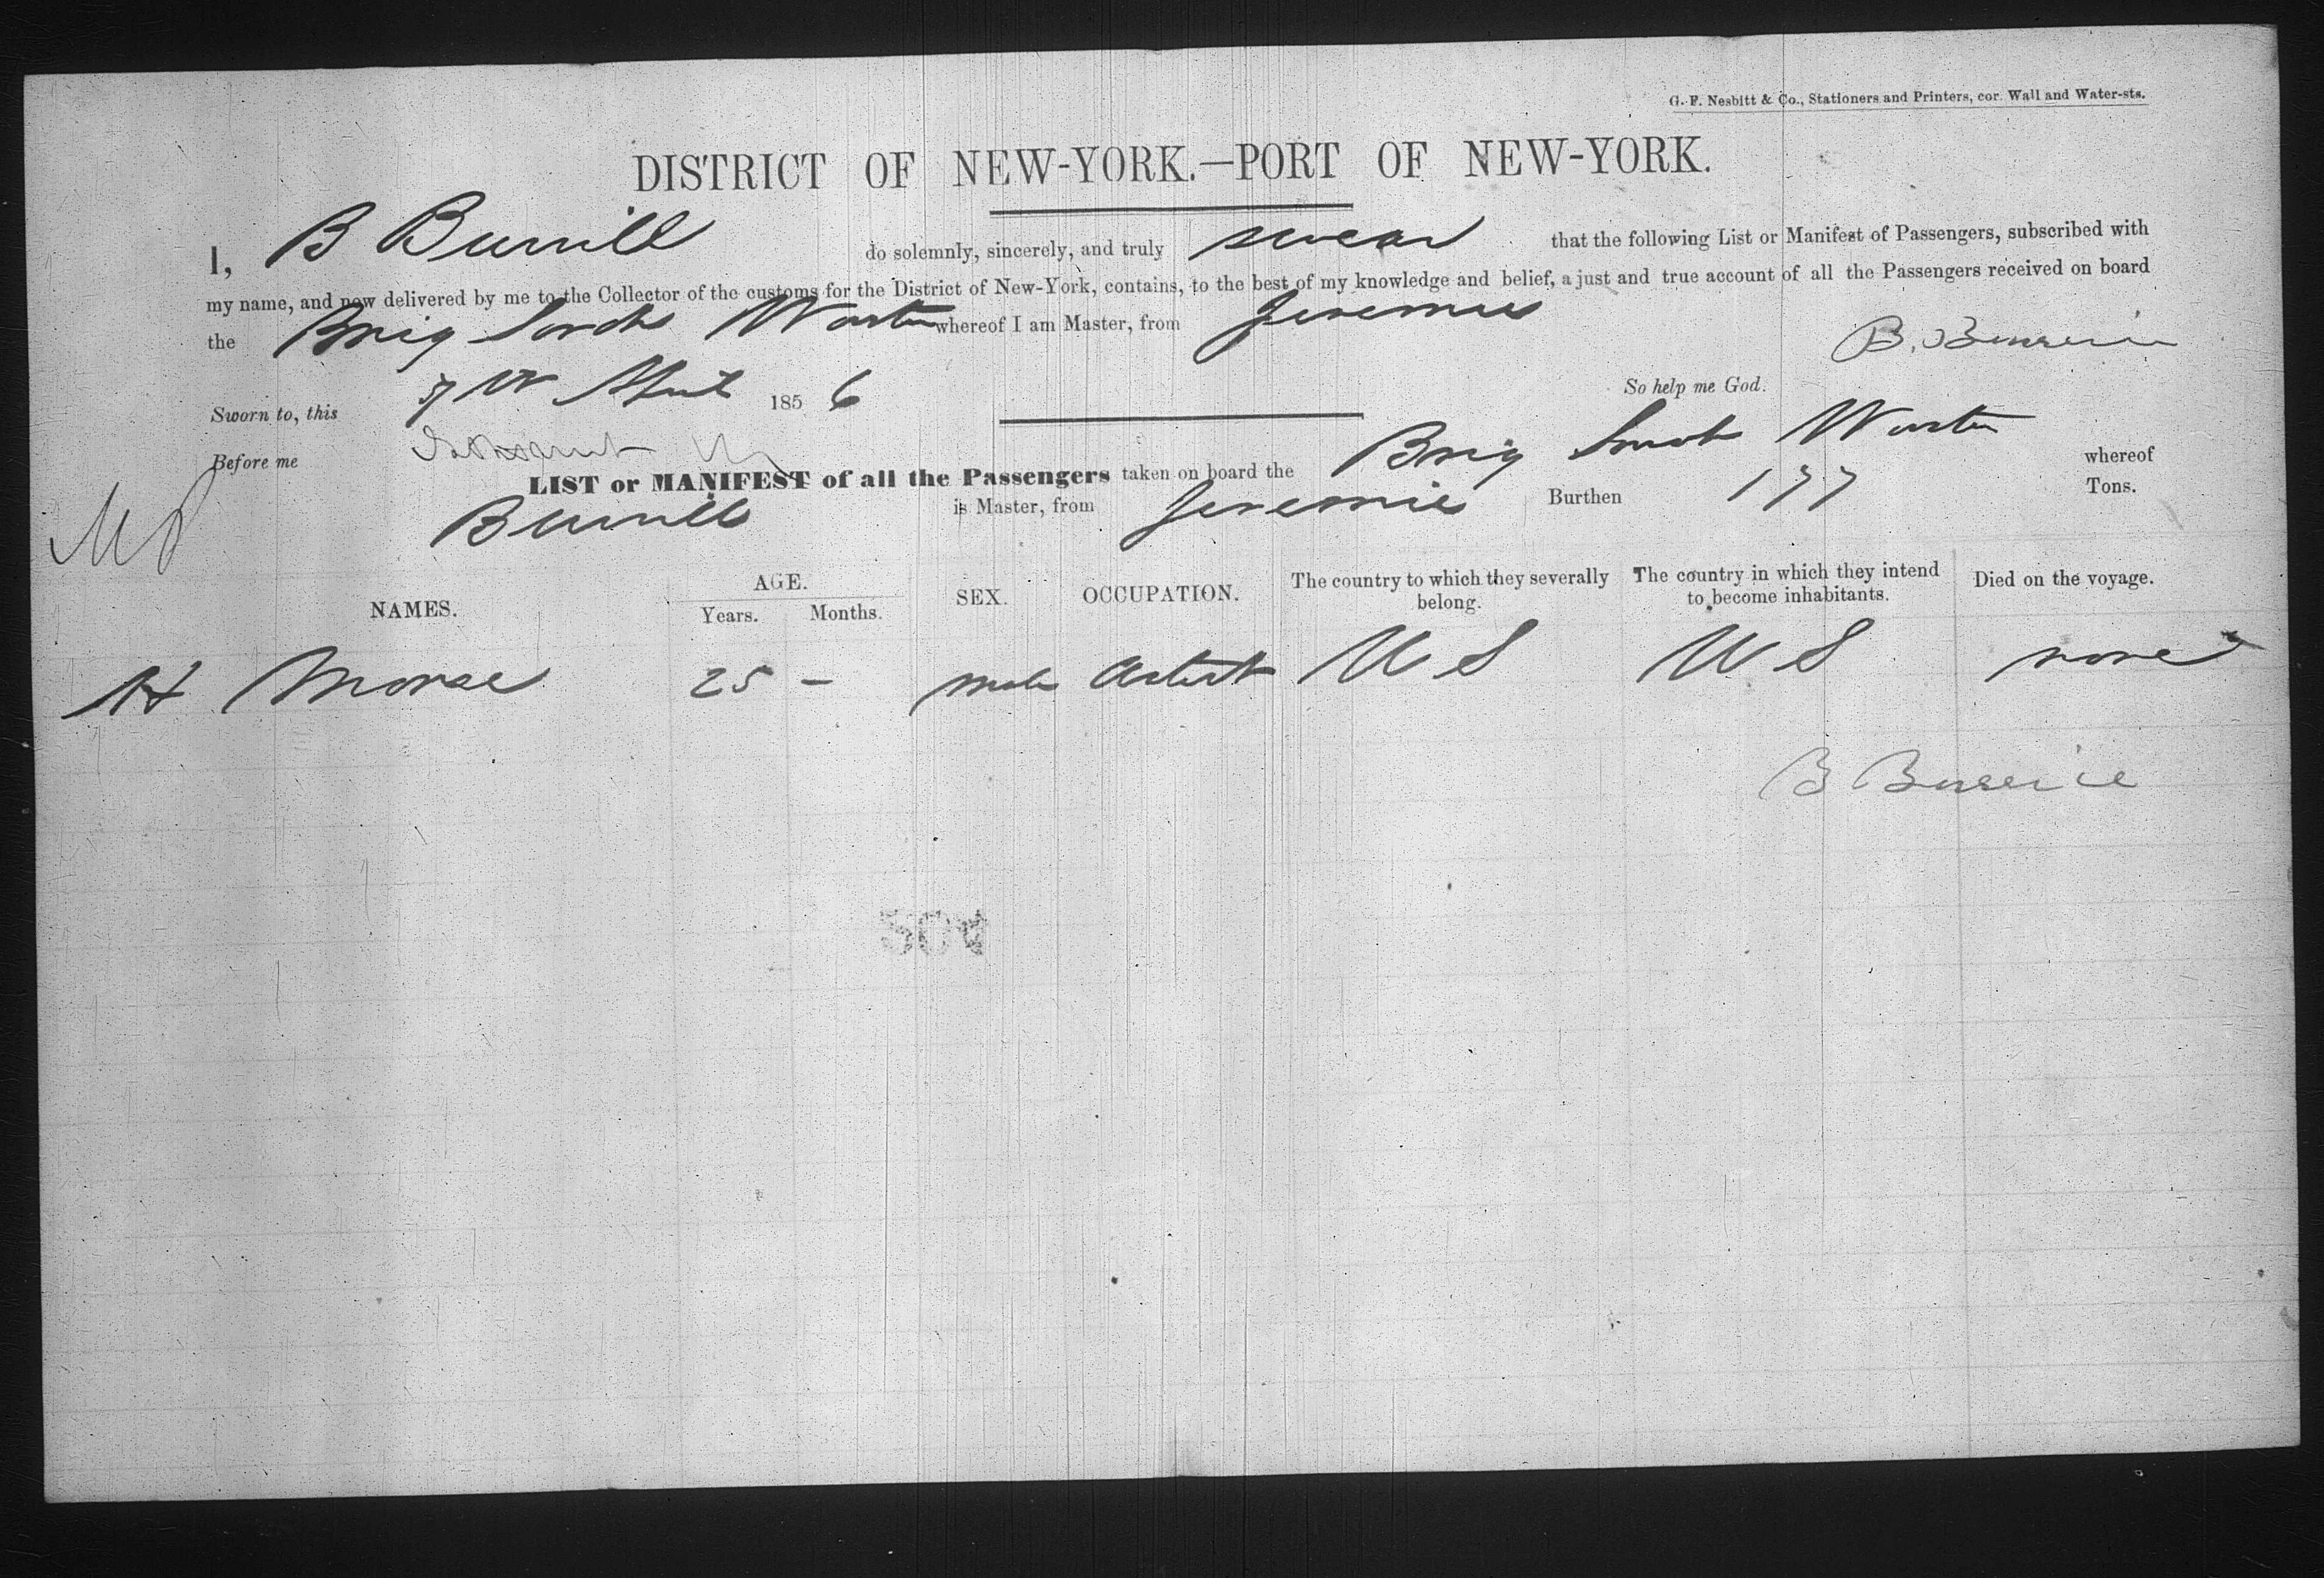 G. F. Nesbitt & Co., Stationers and Printers, cor. Wall and Water-sts.
DISTRICT OF NEW-YORK.—PORT OF NEW-YORK.
I, B Burrill do solemnly, sincerely, and truly swear that the following List or Manifest of Passengers, subscribed with
my name, and now delivered by me to the Collector of the customs for the District of New-York, contains, to the best of my knowledge and belief, a just and true account of all the Passengers received on board
the Brig whereof I am Master, from Jeremie
B. Burrill
So help me God.
Sworn to, this April 1856
Before me
LIST or MANIFEST of all the Passengers taken on board the Brig whereof
Burrill is Master, from Jeremie Burthen 177 Tons.
NAMES. AGE. Years. Months. SEX. OCCUPATION. The country to which they severally belong. The country in which they intend to become inhabitants. Died on the voyage.
H Morse 25 – male Artist U S U S none
B Burrill